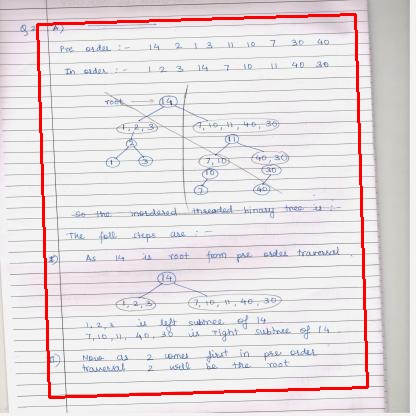 Q.2 A)
Pre order :- 14 2 1 3 11 10 7 30 40
In order :- 1 2 3 14 7 10 11 40 30
root 14
1, 2, 3 7, 10, 11, 40, 30
2 11
1 3 7, 10 40, 30
10 30
7 40
So the inordered threaded binary tree is :-
The foll steps are :-
I) As 14 is root form pre order traversal.
14
1, 2, 3 7, 10, 11, 40, 30
1, 2, 3 is left subtree of 14
7, 10, 11, 40, 30 is right subtree of 14
I) Now as 2 comes first in pre order
traversal 2 will be the root